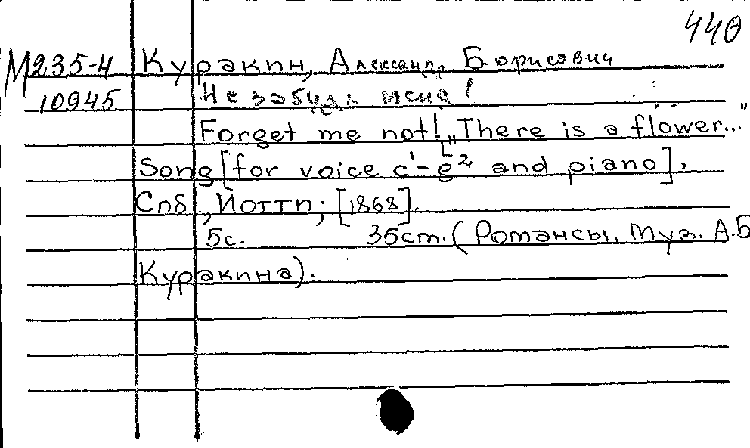 440
М235-4 Куракин, Александр Борисович
10945 Не забудь меня!
Forget me not! „There is a flower..."
Song [for voice c¹-e² and piano].
Спб, Иогтп; [1868].
5с. 35cm. (Романсы. Муз. А.Б
Куракина).